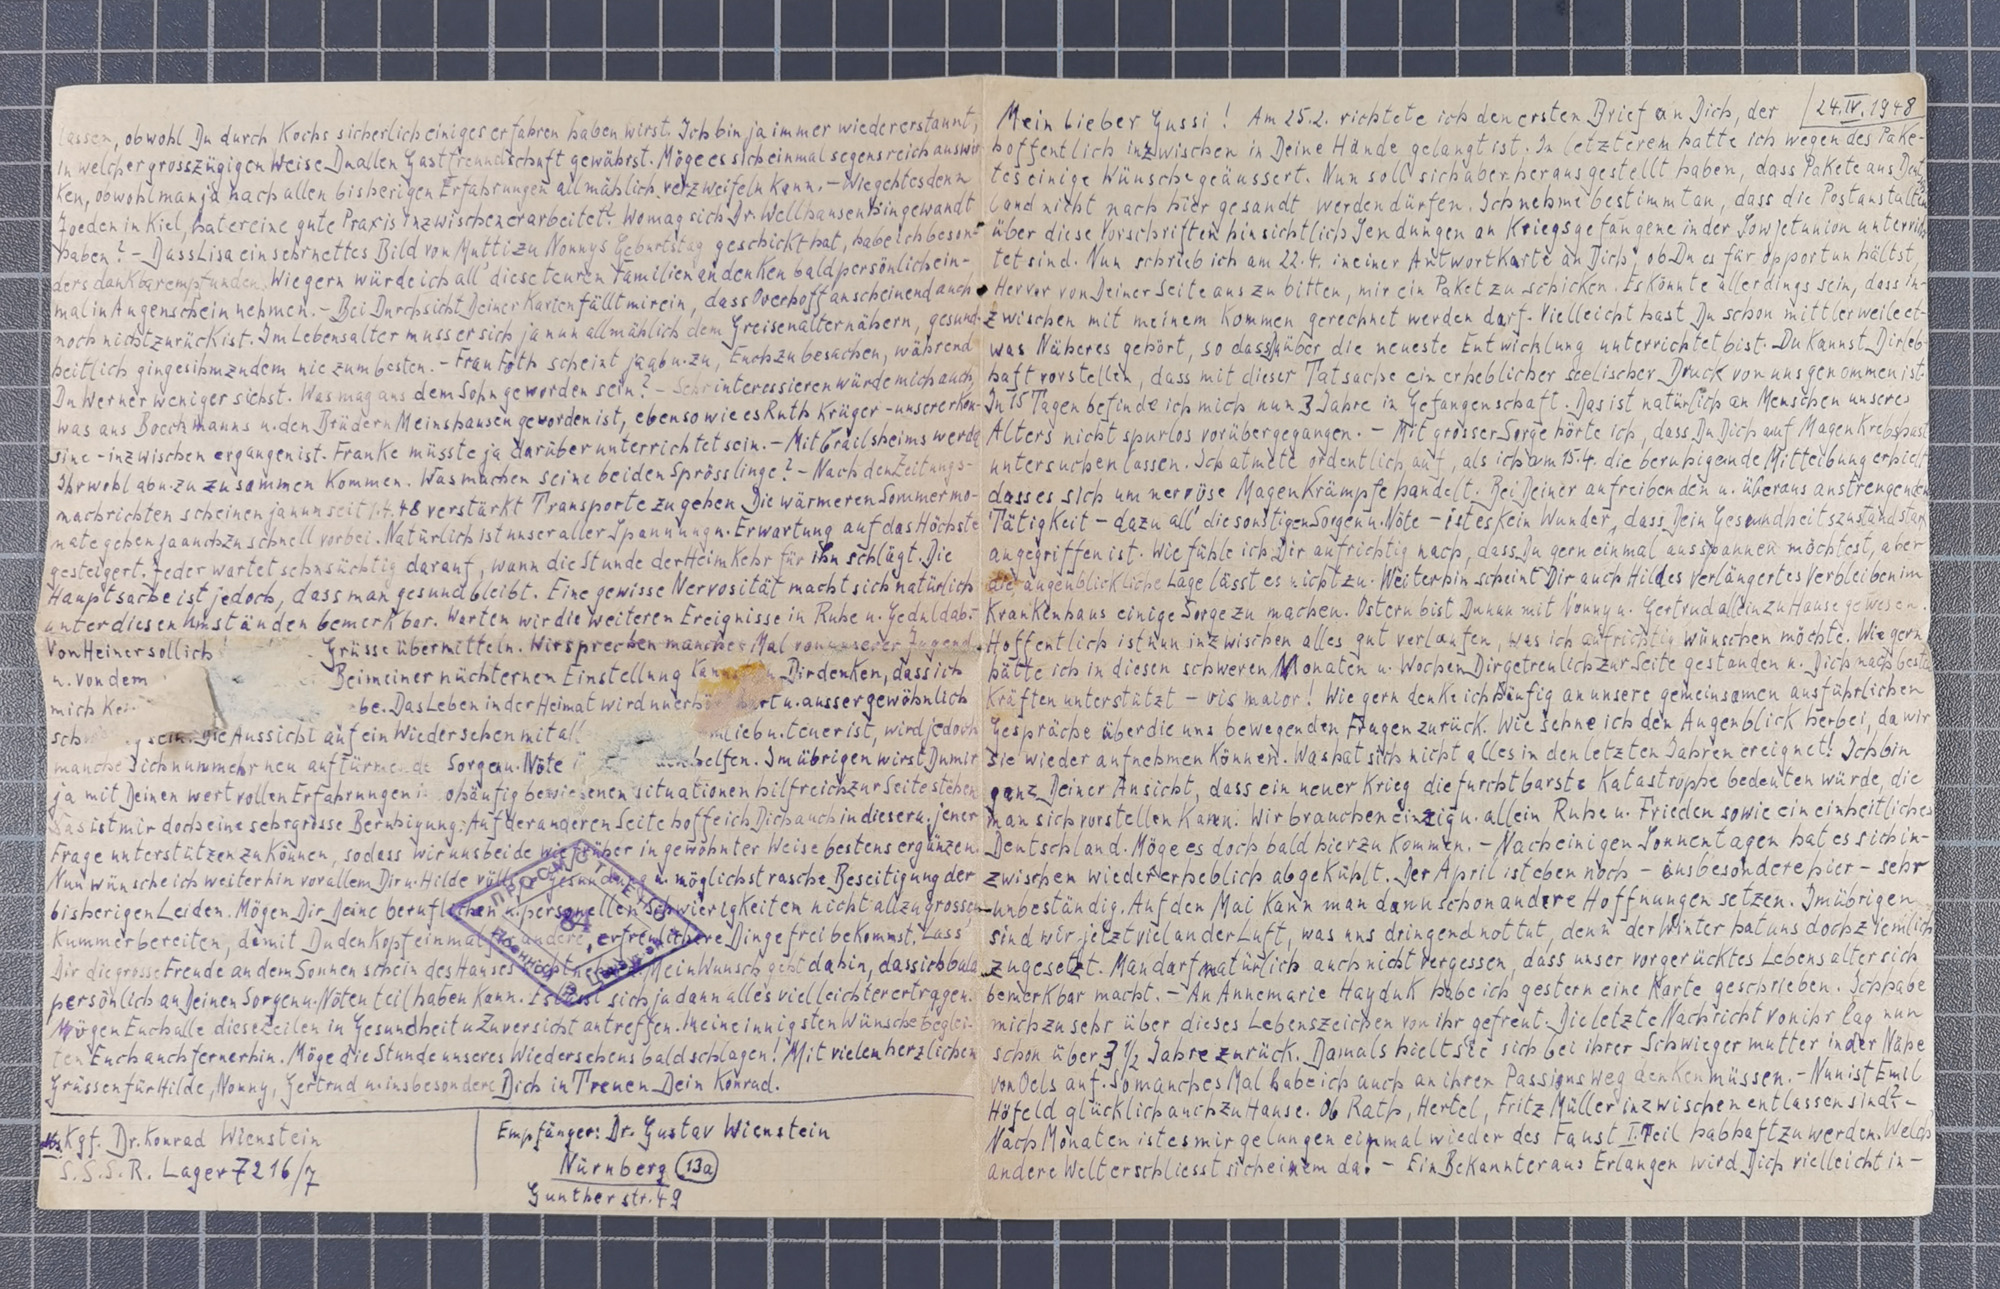 24.IV.1948
Mein lieber Gussi! Am 25.2. richtete ich den ersten Brief an Dich, der
hoffentlich inzwischen in Deine Hände gelangt ist. In letzterem hatte ich wegen des Pake-
tes einige Wünsche geäussert. Nun soll sich aber herausgestellt haben, dass Pakete aus Deut
land nicht nach hier gesandt werden dürfen. Ich nehme bestimmt an, dass die Postanstalten
über diese Vorschriften hinsichtlich Sendungen an Kriegsgefangene in der Sowjetunion unterrich
tet sind. Nun schrieb ich am 22.4. in einer Antwortkarte an Dich, ob Du es für opportun hältst,
Herver von Deiner Seite aus zu bitten, mir ein Paket zu schicken. Es könnte allerdings sein, dass in-
zwischen mit meinem Kommen gerechnet werden darf. Vielleicht hast Du schon mittlerweile et-
was Näheres gehört, so dass Du über die neueste Entwicklung unterrichtet bist. Du kannst Dir leb-
haft vorstellen, dass mit dieser Tatsache ein erheblicher seelischer Druck von uns genommen ist.
In 15 Tagen befinde ich mich nun 3 Jahre in Gefangenschaft. Das ist natürlich an Menschen unseres
Alters nicht spurlos vorübergegangen. - Mit grosser Sorge hörte ich, dass Du Dich auf Magenkrebs hast
untersuchen lassen. Ich atmete ordentlich auf, als ich am 15.4. die beruhigende Mitteilung erhielt
dass es sich um nervöse Magenkrämpfe handelt. Bei Deiner aufreibenden u. überaus anstrengenden
Tätigkeit - dazu all' die sonstigen Sorgen u. Nöte - ist es kein Wunder, dass Dein Gesundheitszustand stark
angegriffen ist. Wie fühle ich Dir aufrichtig nach, dass Du gern einmal ausspannen möchtest, aber
die augenblickliche Lage lässt es nicht zu. Weiterhin scheint Dir auch Hildes verlängertes Verbleiben im
Krankenhaus einige Sorge zu machen. Ostern bist Du nun mit Nonny u. Gertrud allein zu Hause gewesen.
Hoffentlich ist nun inzwischen alles gut verlaufen, was ich aufrichtig wünschen möchte. Wie gern
hätte ich in diesen schweren Monaten u. Wochen Dir getreulich zur Seite gestanden u. Dich nach besten
Kräften unterstützt - vis maior! Wie gern denke ich häufig an unsere gemeinsamen ausführlichen
Gespräche über die uns bewegenden Fragen zurück. Wie sehne ich den Augenblick herbei, da wir
sie wieder aufnehmen können. Was hat sich nicht alles in den letzten Jahren ereignet! Ich bin
ganz Deiner Ansicht, dass ein neuer Krieg die furchtbarste Katastrophe bedeuten würde, die
man sich vorstellen kann. Wir brauchen einzig u. allein Ruhe u. Frieden sowie ein einheitliches
Deutschland. Möge es doch bald hierzu kommen. - Nach einigen Sonnentagen hat es sich in-
zwischen wieder erheblich abgekühlt. Der April ist eben noch - insbesondere hier - sehr
unbeständig. Auf den Mai kann man dann schon andere Hoffnungen setzen. Im übrigen
sind wir jetzt viel an der Luft, was uns dringend not tut, denn der Winter hat uns doch ziemlich
zugesetzt. Man darf natürlich auch nicht vergessen, dass unser vorgerücktes Lebensalter sich
bemerkbar macht. - An Annemarie Hayduk habe ich gestern eine Karte geschrieben. Ich habe
mich zu sehr über dieses Lebenszeichen von ihr gefreut. Die letzte Nachricht von ihr lag nun
schon über 3 1/2 Jahre zurück. Damals hielt sie sich bei ihrer Schwiegermutter in der Nähe
von Oels auf. So manches Mal habe ich auch an ihren Passionsweg denken müssen. - Nun ist Emil
Höfeld glücklich auch zu Hause. Ob Rath, Hertel, Fritz Müller inzwischen entlassen sind? -
Nach Monaten ist es mir gelungen einmal wieder des Faust I. Teil habhaft zu werden. Welch
andere Welt erschliesst sich einem da! - Ein Bekannter aus Erlangen wird Dich vielleicht in -
lassen, obwohl Du durch Kochs sicherlich einiges erfahren haben wirst. Ich bin ja immer wieder erstaunt,
in welcher grosszügigen Weise Du allen Gastfreundschaft gewährst. Möge es sich einmal segensreich auswir
ken, obwohl man ja nach allen bisherigen Erfahrungen allmählich verzweifeln kann. - Wie geht es denn
Zoeden in Kiel, hat er eine gute Praxis inzwischen erarbeitet? Wo mag sich Dr. Wellhausen hingewandt
haben? - Dass Lisa ein sehr nettes Bild von Mutti zu Nonnys Geburtstag geschickt hat, habe ich beson-
ders dankbar empfunden. Wie gern würde ich all' diese teuren Familienandenken bald persönlich ein-
mal in Augenschein nehmen. - Bei Durchsicht Deiner Karten fällt mir ein, dass Overhoff anscheinend auch
noch nicht zurück ist. Im Lebensalter muss er sich ja nun allmählich dem Greisenalter nähern, gesund-
heitlich ging es ihm zudem nie zum besten. - Frau Foth scheint ja ab u. zu, Euch zu besuchen, während
Du Werner weniger siehst. Was mag aus dem Sohn geworden sein? - Sehr interessieren würde mich auch,
was aus Boeckmanns u. den Brüdern Meinshausen geworden ist, ebenso wie es Ruth Krüger - unserer Kou-
sine - inzwischen ergangen ist. Franke müsste ja darüber unterrichtet sein. - Mit Crailsheims werdet
Ihr wohl ab u. zu zusammen kommen. Was machen seine beiden Sprösslinge? - Nach den Zeitungs-
nachrichten scheinen ja nun seit 1.4.48 verstärkt Transporte zu gehen. Die wärmeren Sommermo-
nate gehen ja auch zu schnell vorbei. Natürlich ist unser aller Spannung u. Erwartung auf das Höchste
gesteigert. Jeder wartet sehnsüchtig darauf, wann die Stunde der Heimkehr für ihn schlägt. Die
Hauptsache ist jedoch, dass man gesund bleibt. Eine gewisse Nervosität macht sich natürlich
unter diesen Umständen bemerkbar. Warten wir die weiteren Ereignisse in Ruhe u. Geduld ab. -
Von Heiner soll ich Grüsse übermitteln. Wir sprechen manches Mal von unserer Jugend
u. von dem Bei meiner nüchternen Einstellung Dir denken, dass ich
mich be. Das Leben in der Heimat wird unerhört hart u. aussergewöhnlich
sein. Die Aussicht auf ein Wiedersehen mit all lieb u. teuer ist, wird jedoch
manche sich nunmehr neu auftürmende Sorge u. Nöte helfen. Im übrigen wirst Du mir
ja mit Deinen wertvollen Erfahrungen häufig bewiesenen Situationen hilfreich zur Seite stehen
Das ist mir doch eine sehr grosse Beruhigung. Auf der anderen Seite hoffe ich Dich auch in dieser u. jener
Frage unterstützen zu können, sodass wir uns beide wie früher in gewohnter Weise bestens ergänzen.
Nun wünsche ich weiterhin vor allem Dir u. Hilde völlige Gesundung u. möglichst rasche Beseitigung der
bisherigen Leiden. Mögen Dir Deine beruflichen u. personellen Schwierigkeiten nicht allzu grossen
Kummer bereiten, damit Du den Kopf einmal für andere, erfreulichere Dinge frei bekommst. Lass
Dir die grosse Freude an dem Sonnenschein des Hauses nicht nehmen. Mein Wunsch geht dahin, dass ich bald
persönlich an Deinen Sorgen u. Nöten teilhaben kann. Es lässt sich ja dann alles viel leichter ertragen.
Mögen Euch alle diese Zeilen in Gesundheit u. Zuversicht antreffen. Meine innigsten Wünsche beglei-
ten Euch auch fernerhin. Möge die Stunde unseres Wiedersehens bald schlagen! Mit vielen herzlichen
Grüssen für Hilde, Nonny, Gertrud u. insbesondere Dich in Treuen Dein Konrad.
Abs. Kgf. Dr. Konrad Wienstein
S.S.S.R. Lager 7216/7
Empfänger: Dr. Gustav Wienstein
Nürnberg (13a)
Guntherstr. 49
ПРОСМОТРЕНО
84
Военной Цензурой